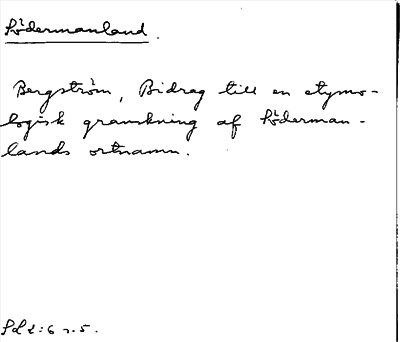 Södermanland.
Bergström, Bidrag till en etymo-
logisk granskning af Söderman-
lands ortnamn.
Sd 2:6 s. 5.